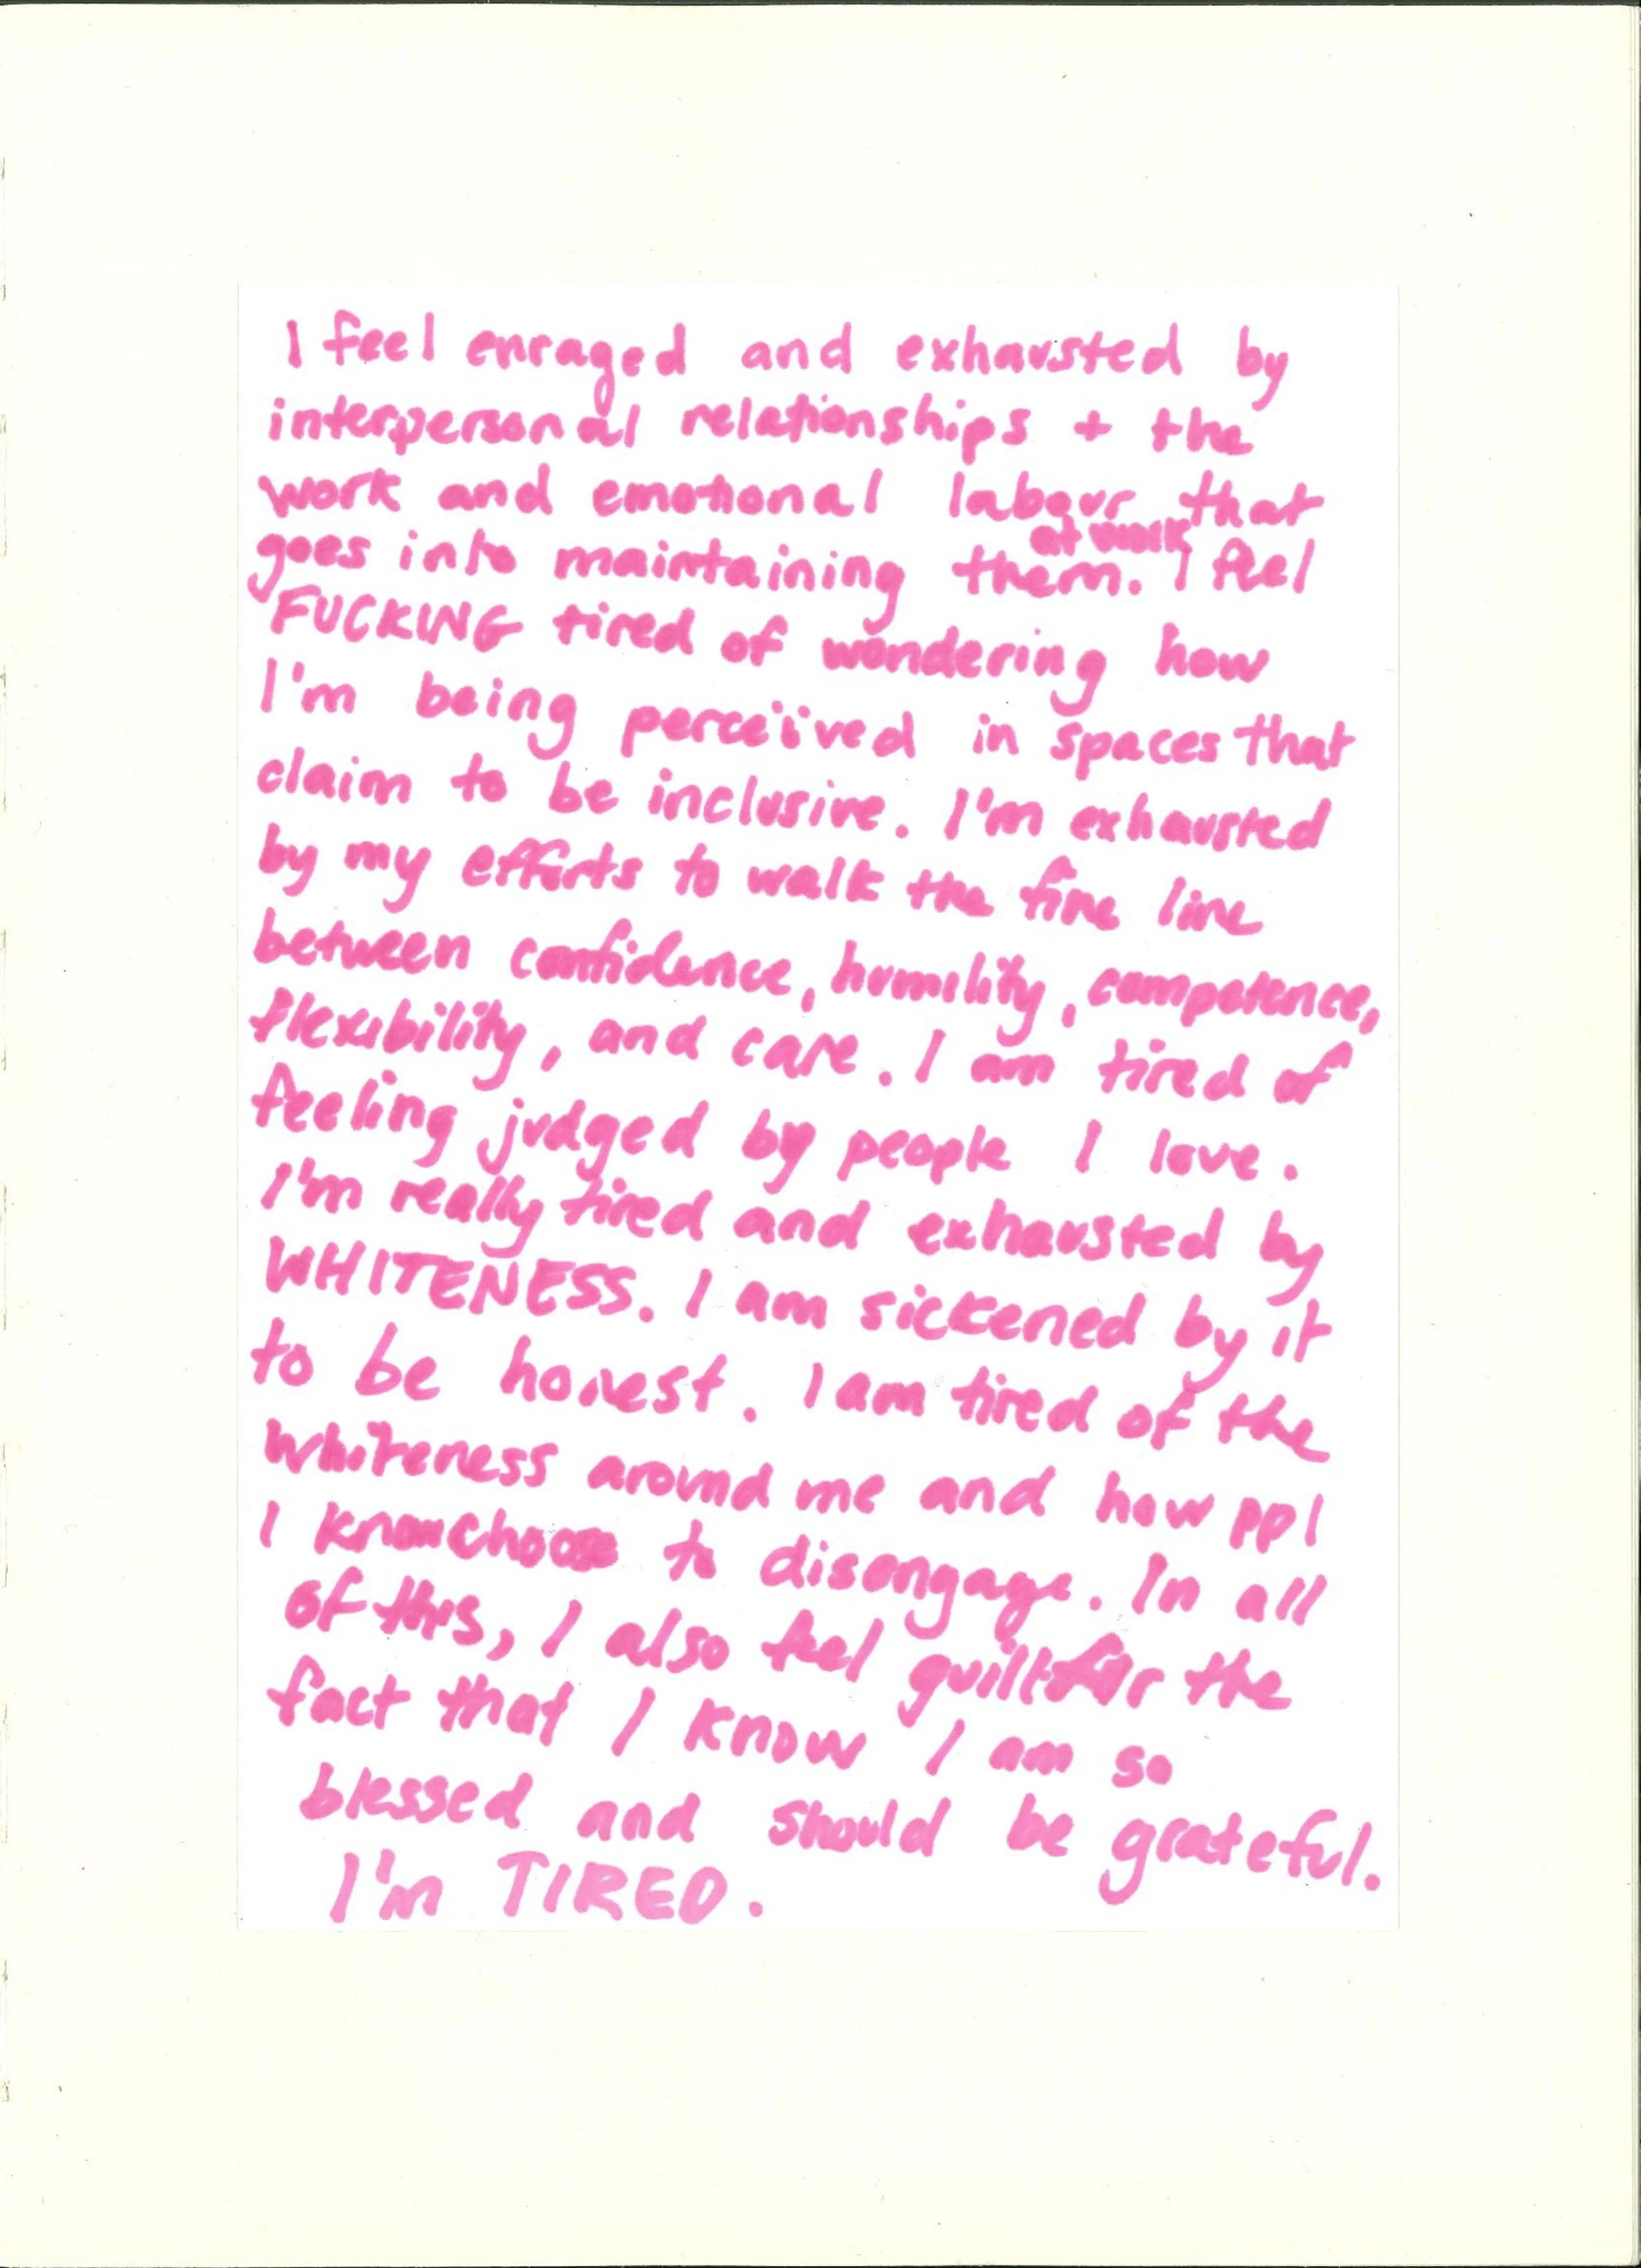 I feel enraged and exhausted by
interpersonal relationships + the
work and emotional labour that
at work
goes into maintaining them. I feel
FUCKING tired of wondering how
I'm being perceiived in spaces that
claim to be inclusive. I'm exhausted
by my efforts to walk the fine line
between confidence, humility, competence,
flexibility, and care. I am tired of
feeling judged by people I love.
I'm really tired and exhausted by
WHITENESS. I am sickened by it
to be honest. I am tired of the
whiteness around me and how ppl
I know choose to disengage. In all
of this, I also feel guilt for the
fact that I know I am so
blessed and should be grateful.
I'm TIRED.